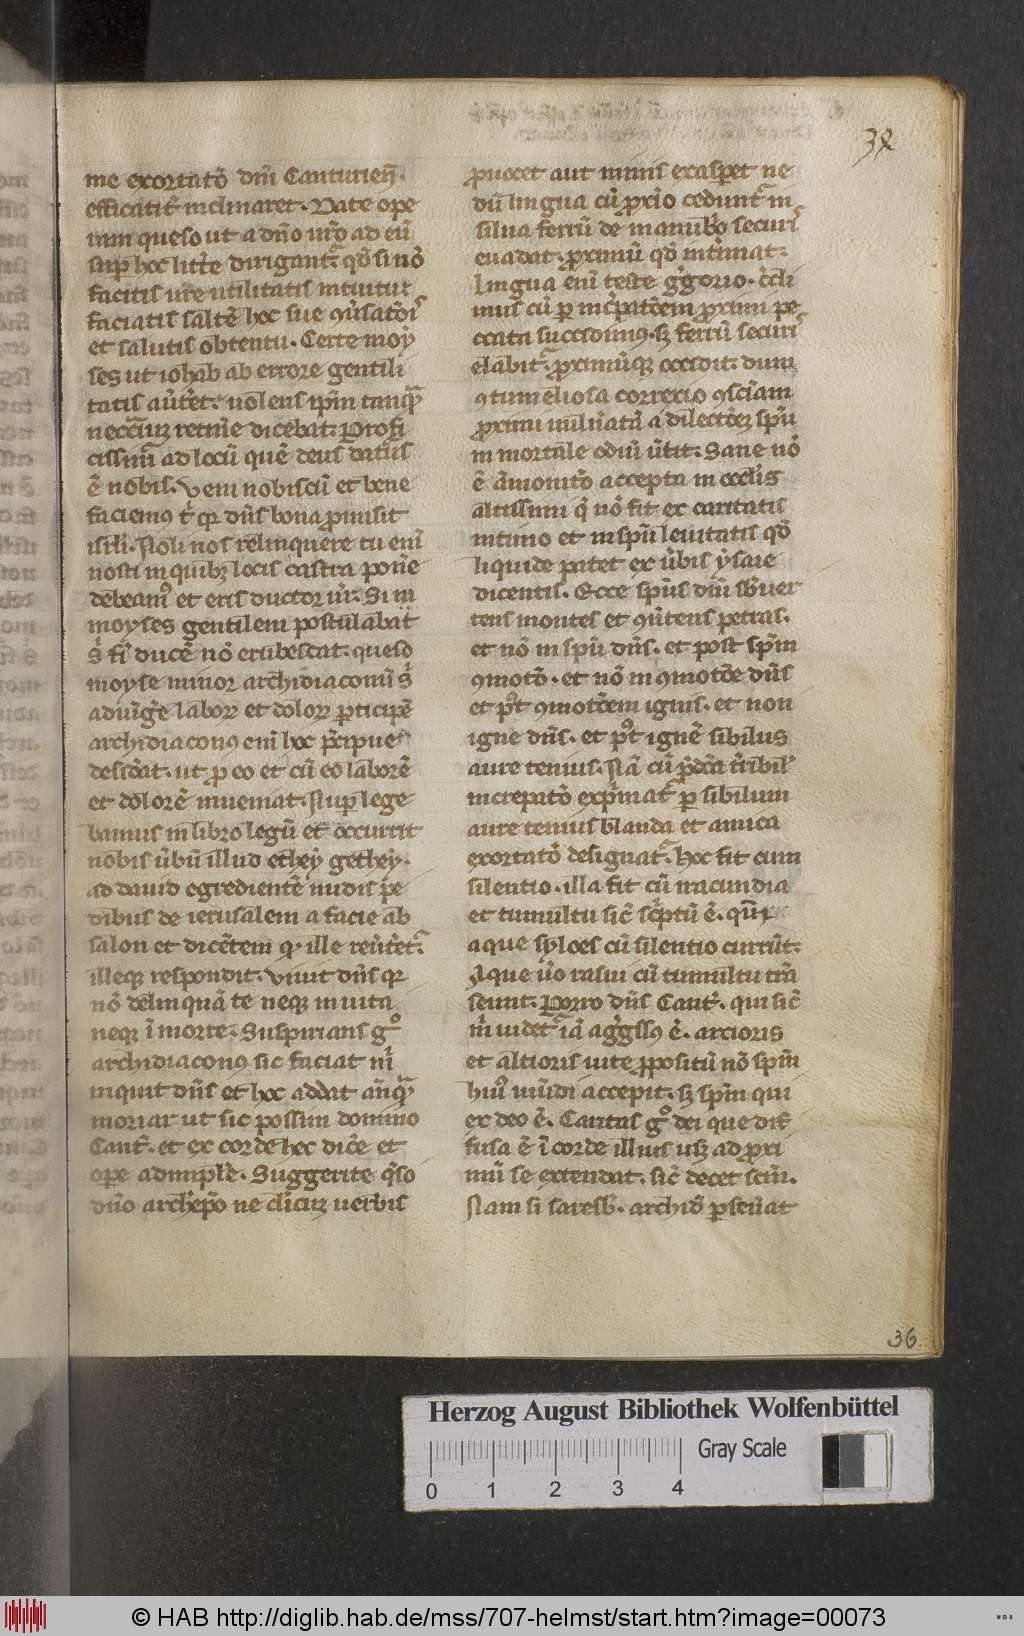 38
me exortatō dn̄i Canturieñ.
efficatit̄ inclinaret. Date ope
ram queso ut a dn̄o nr̄o ad eū
sup hoc litt̄e dirigant᷑. qđ si nō
facitis ure utilitatis intuitu
faciatis saltē hoc sue
et salutis obtentu. Certe moy
ses ut iohab ab errore gentili
tatis aūtet. nolens ip̄m tanqᷓ
retine dicebat. Profi
cissim̄ ad locū quē deus datus
ē nobis. Veni nobiscū et bene
faciemꝰ t̄ qꝛ dn̄s bona promisit
isrl̄i. Noli nos relinquere tu eni
nosti in quibꝫ locis castra pon̄e
debeamꝰ et eris ductor nr̄. Si in
moyses gentilem postulabat
s̄ fi ducē nō erubescat. queso
moyse minor archidiaconū s̄
adiūḡe laborꝫ et dolorꝫ p̱ticipē
archidiaconꝰ eni hoc p̄cipue
desid̄at. ut pro eo et cū eo laborē
et dolorē inueniat. Nup lege
bamus in libro legū et occurrit
nobis ūbū illud ethey gethey.
ad dauid egredientē nudis pe
dibus de ierusalem a facie ab
salon et dicētem qͥ ille reūtet᷑.
illeqꝫ respondit. Viuit dn̄s qꝛ
nō delinquā te neqꝫ in uita
neqꝫ ī morte. Suspirans gͦ
archidiaconꝰ sic faciat m̄
inquit dn̄s et hoc addat an̄qᷓ
moriar ut sic possim domino
Cant̄. et ex corde hec dic̄e et
ope adimple. Suggerite qͣso
dn̄o archiep̄o ne clicūꝫ uerbis
prouocet aut minis exasp̱et ne
dū lingua cū proximo cedunt᷑ in
silua ferrū de manubrio securis
euadat. proximū qđ int̄imat.
Lingua eni teste gḡorio.
mus cū p̱ increpatōem proximi pe
ccata succidimꝰ. sꝫ ferrū securis
elabit᷑. proximūqꝫ occidit. dum
ꝯtumeliosa correxio ꝯsciam
proximi a dilectōis spū
in mortale odiū ūtit. Sane nō
ē āmonitō accepta in occlis
altissimi q̄ nō fit ex caritatis
intimo et in spū leuitatis qđ
liquide patet ex ūbis ysaie
dicentis. Ecce spūs dn̄i sbuer
tens montes et ꝯterens petras.
et nō in spū dn̄s. et post spm̄
ꝯmotō. et nō in ꝯmotōe dn̄s
et pꝰt ꝯmotōem ignis. et non
igne dn̄s. et pꝰt ignē sibilus
aure tenuis. Nā cū p̄dcā t̄ribil̄
increpatō expͥmat̄ p̱ sibilum
aure tenuis blanda et amica
exortatō designat᷑. Hoc fit cum
silentio. illa fit cū iracundia
et tumultu sic̄ sc̄ptū ē.
aque syloes cū silentio currūt.
Aque ūo rasin cū tumultu trā
seunt. Porro dn̄s Cant̄. qui sic̄
m̄ uidet᷑ iā aḡgssꝰ ē. arcioris
et altioris uite propositū nō spm̄
huiꝰ mūdi accepit. sꝫ spm̄ qui
ex deo ē. Caritas gͦ dei que dif
fusa ē ī corde illius usqꝫ ad proxi
mū se extendat. sic̄ decet scm̄.
Nam si saresb̄. archid̄ p̱seūat
36
Herzog August Bibliothek Wolfenbüttel
Gray Scale
0 1 2 3 4
© HAB http://diglib.hab.de/mss/707-helmst/start.htm?image=00073
WDB